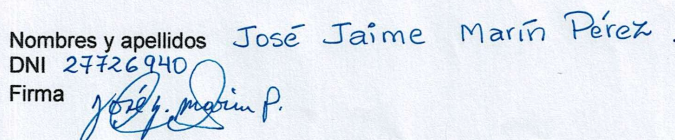 Nombres y apellidos José Jaime Marín Pérez.
DNI 27726940
Firma José J. Marín P.